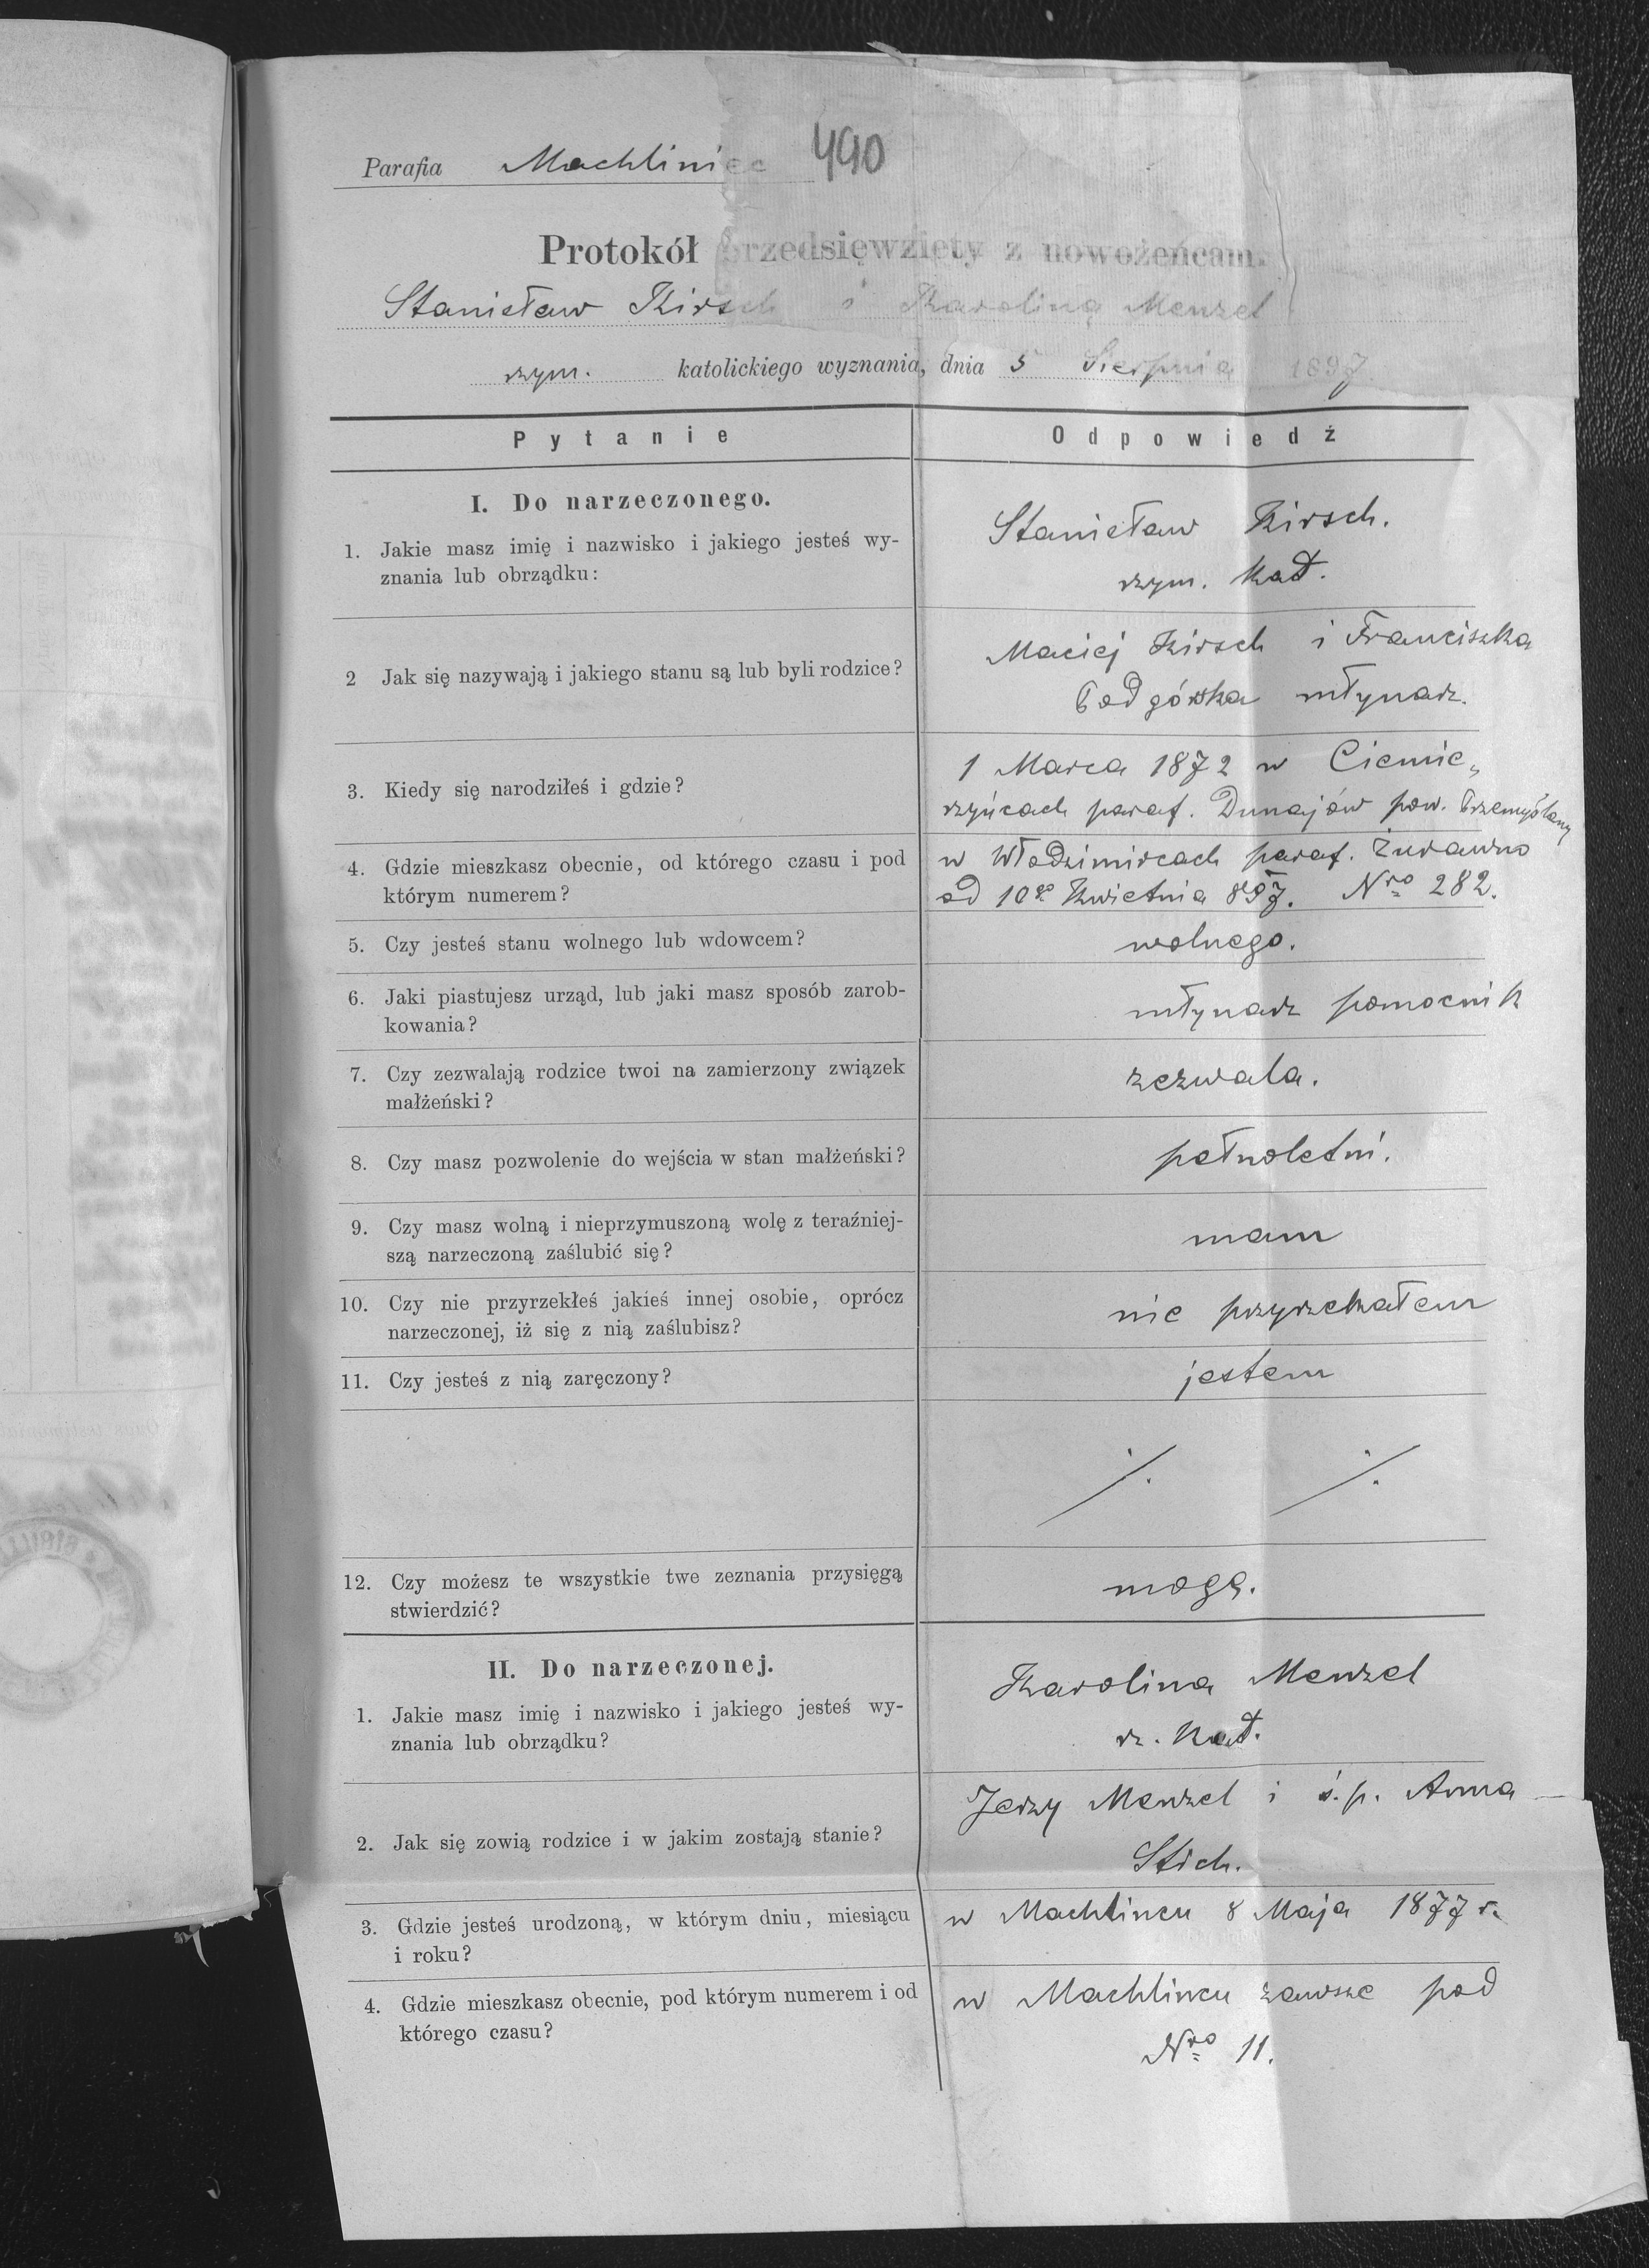 Parafia Machliniec 490
Protokół przedsięwzięty z nowożeńcami
Stanisław Kirsch i Karoliną Menzel
rzym. katolickiego wyznania, dnia 5 Sierpnia 1897
Pytanie Odpowiedź
I. Do narzeczonego.
1. Jakie masz imię i nazwisko i jakiego jesteś wy-
znania lub obrządku:
Stanisław Kirsch.
rzym. kat.
2 Jak się nazywają i jakiego stanu są lub byli rodzice?
Maciej Kirsch i Franciszka
Podgórska młynarz.
3. Kiedy się narodziłeś i gdzie?
1 Marca 1872 w Ciemie„
rzyńcach paraf. Dunajów pow. Przemyślany
4. Gdzie mieszkasz obecnie, od którego czasu i pod
którym numerem?
w Włodzimircach paraf. Żurawno
od 10go Kwietnia 897. Nro 282.
5. Czy jesteś stanu wolnego lub wdowcem?
wolnego.
6. Jaki piastujesz urząd, lub jaki masz sposób zarob-
kowania?
młynarz pomocnik
7. Czy zezwalają rodzice twoi na zamierzony związek
małżeński?
zezwala.
8. Czy masz pozwolenie do wejścia w stan małżeński?
pełnoletni.
9. Czy masz wolną i nieprzymuszoną wolę z teraźniej-
szą narzeczoną zaślubić się?
mam
10. Czy nie przyrzekłeś jakieś innej osobie, oprócz
narzeczonej, iż się z nią zaślubisz?
nie przyrzekałem
11. Czy jesteś z nią zaręczony?
jestem
12. Czy możesz te wszystkie twe zeznania przysięgą
stwierdzić?
mogę.
II. Do narzeczonej.
1. Jakie masz imię i nazwisko i jakiego jesteś wy-
znania lub obrządku?
Karolina Menzel
rz. kat.
2. Jak się zowią rodzice i w jakim zostają stanie?
Jerzy Menzel i ś.p. Anna
Stich.
3. Gdzie jesteś urodzoną, w którym dniu, miesiącu
i roku?
w Machlińcu 8 Maja 1877 r.
4. Gdzie mieszkasz obecnie, pod którym numerem i od
którego czasu?
w Machlińcu zawsze pod
Nro 11.